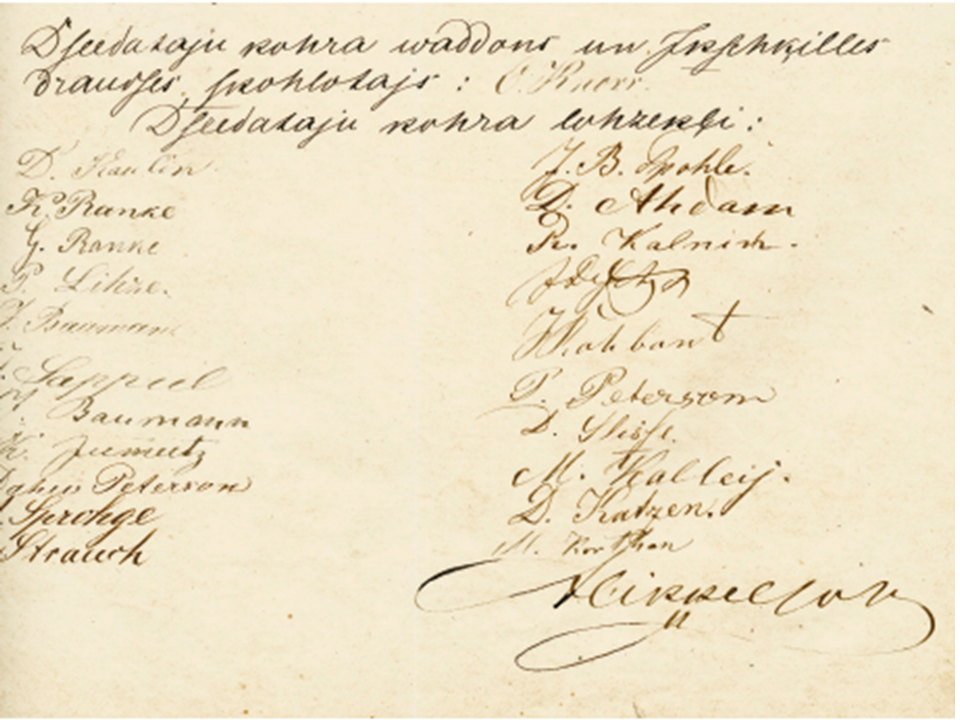 Dseedataju kohra waddons un Ikschkilles
draudses skohlotajs : C. Knorr.
Dseedataju kohra lohzekli :
D. Kaulin
K. Ranke
G. Ranke
P. Lihze.
J. Baumann
Sappeel
Baumann
Peterson
Sprohge
Strauch
J. B. Spohle.
D. Ahdam
Kalnin.
P. Peterson
D.
M. Kalleij.
D. Katzen.
M.
Mikkelson